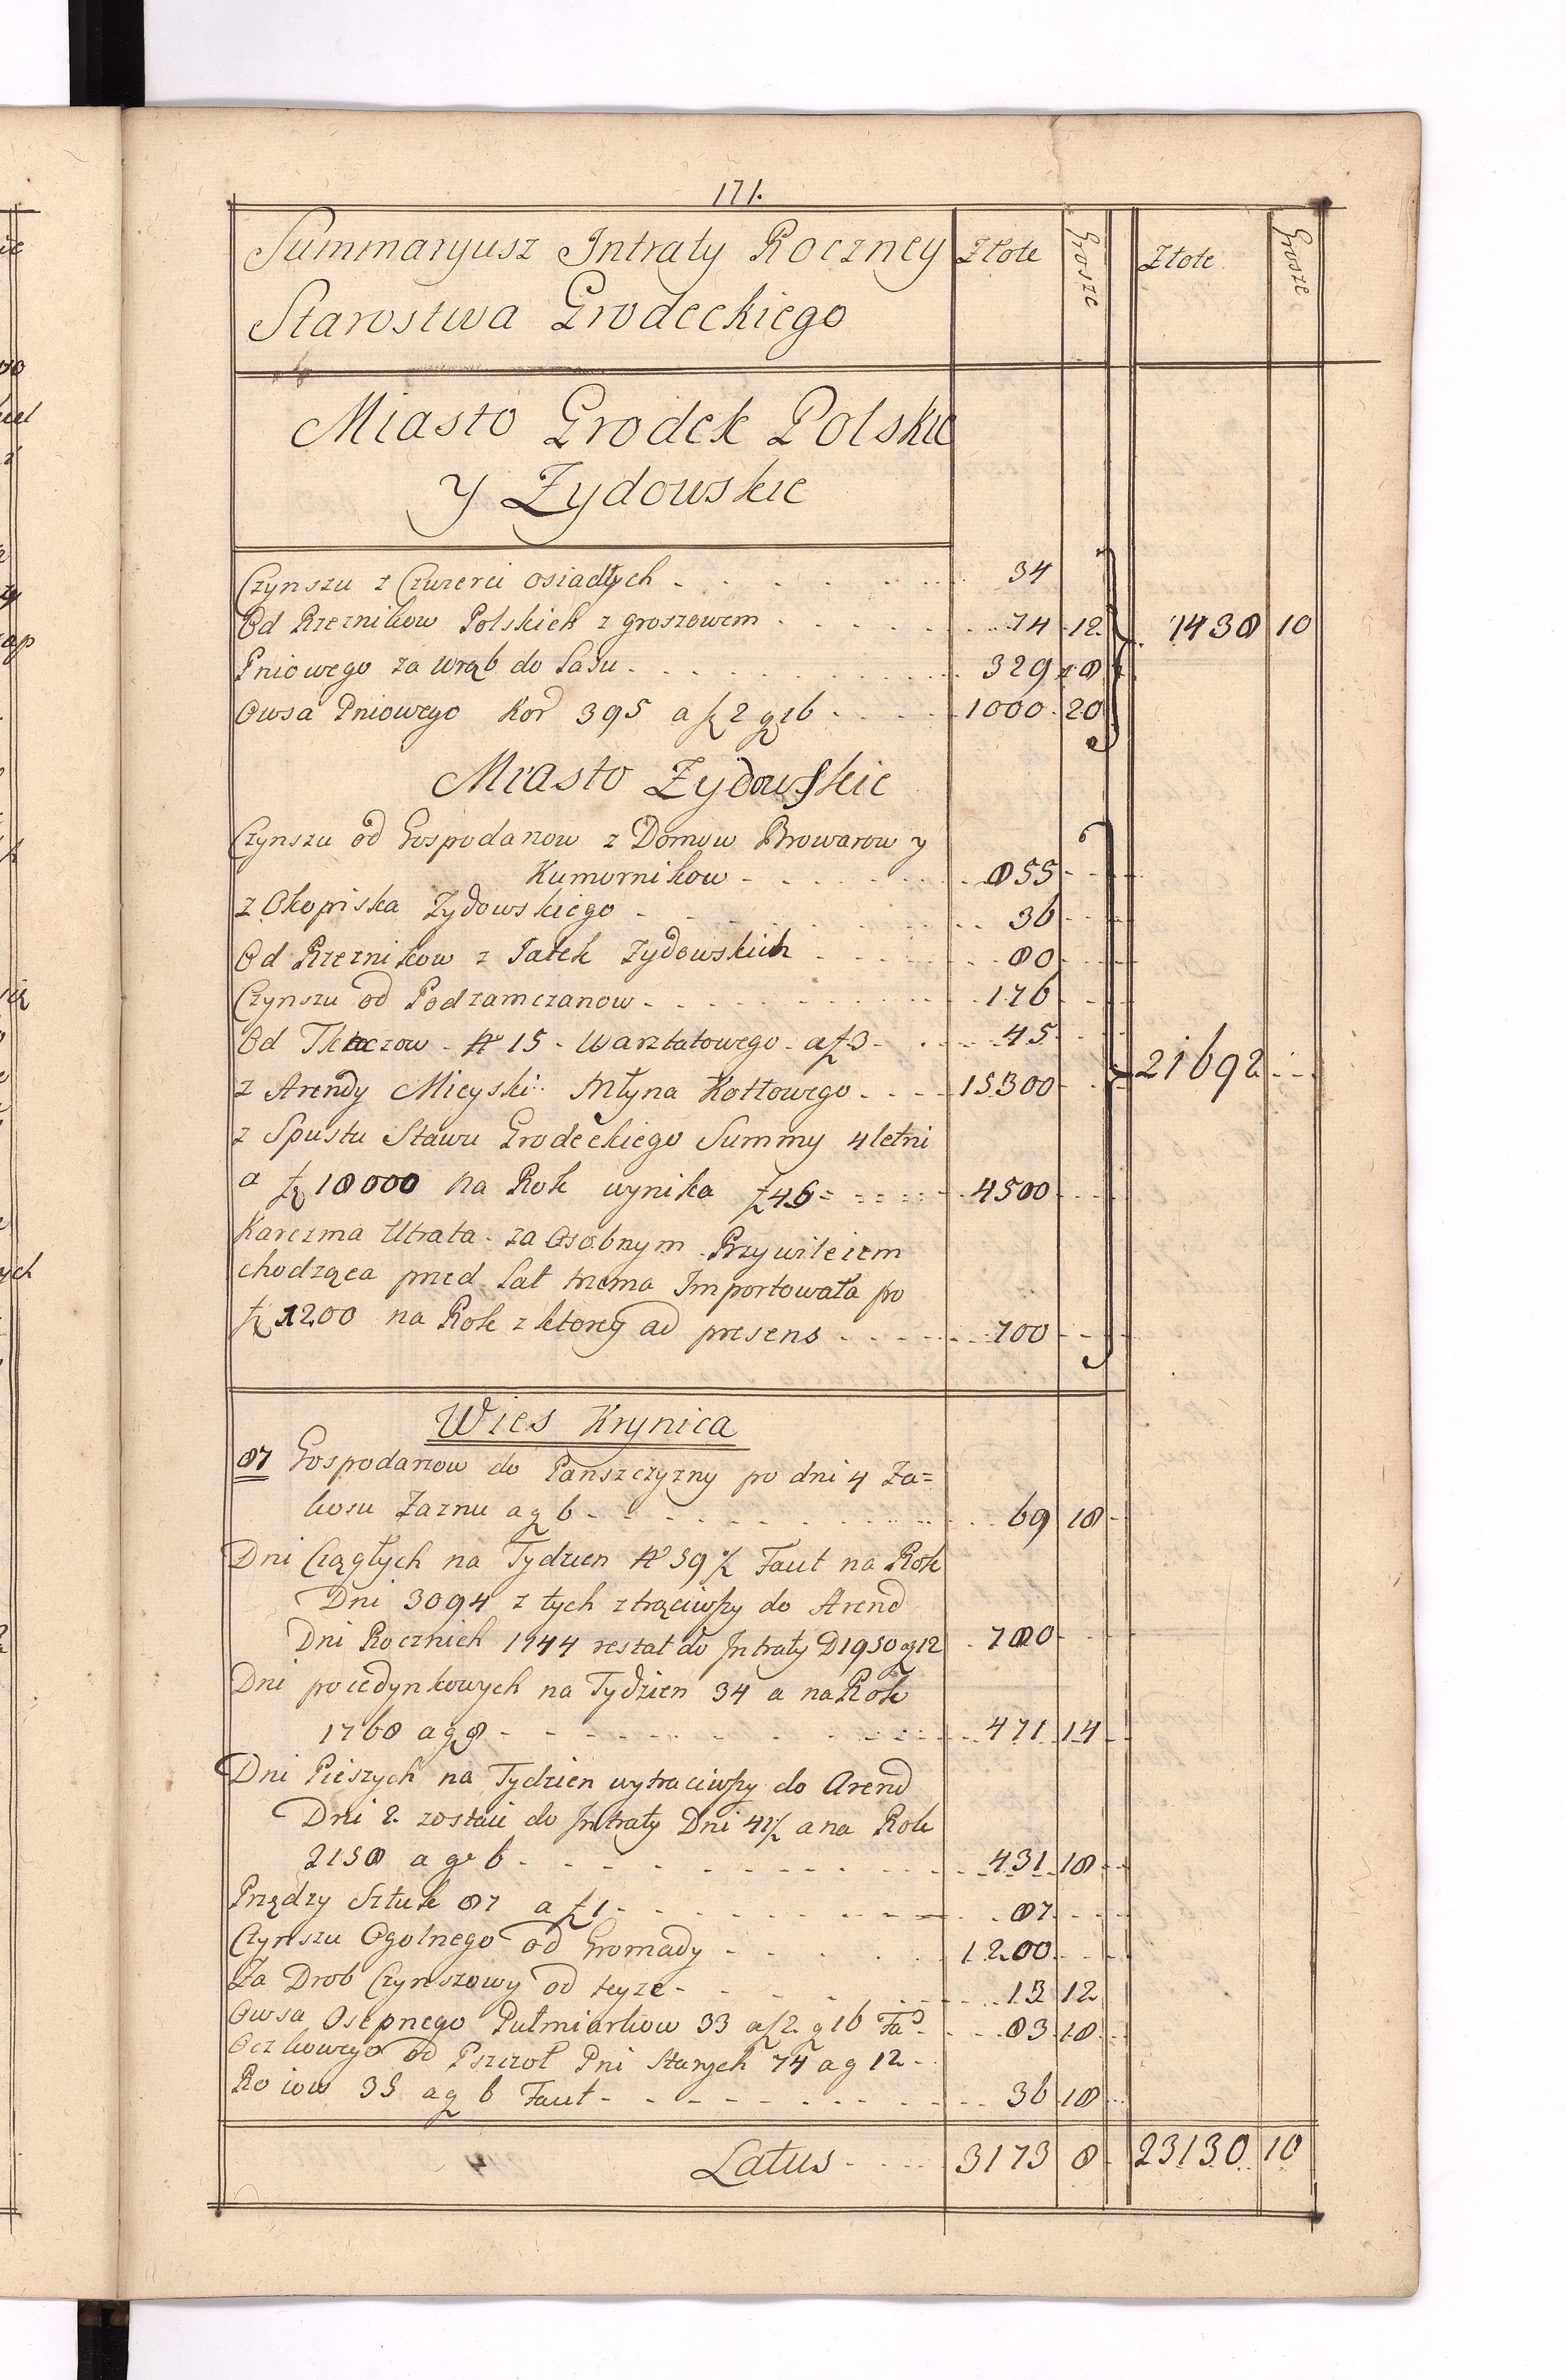 171.
Summaryusz Intraty Roczney
Starostwa Grodeckiego
Złote
Grosze
Złote
Grosze
Miasto Grodek Polskie
y Zydowskie
Czynszu z Czwerci osiadłych 34
Od Rzeznikow Polskich z groszowem 74 12 1438 10
Pniowego za wrąb do Lasu 329 8
Owsa Pniowego Kor 395 a f 2 g 16 1000 20
Miasto Zydowskie
Czynszu od Gospodarzow z Domow Browarow y
Kumornikow 855
z Okopiska Zydowskiego 36
Od Rzeznikow z Jatek Zydowskich 80
Czynszu od Podzamczanow 176
Od Tkaczow No 15 Warztatowego a f 3 45
z Arendy Mieyski Młyna Kottowego 15300 21692
z Spustu Stawu Grodeckiego Summy 4 letni
a f 18000 na Rok wynika f 45 4500
Karczma Utrata za Osobnym Przywileiem
chodząca przed Lat trzema Importowała po
f 1200 na Rok z ktorey ad presens 700
Wies Krynica
87 Gospodarzow do Panszczyzny po dni 4 Za=
kosu Zarnu a g 6 69 18
Dni Ciągłych na Tydzien No 59 ½ Faut na Rok
Dni 3094 z tych ztrąciwszy do Arend
Dni Rocznich 1144 restat do Intraty D 1950 a g 12 780
Dni pociedynkowych na Tydzien 34 a na Rok
1768 a g 8 471 14
Dni Pieszych na Tydzien wytraciwszy do Arend
Dni 2. zostaie do Intraty Dni 41½ a na Rok
2158 a g 6 431 18
Przędzy Sztuk 87 a f 1 87
Czynszu Ogolnego od Gromady 1200
Za Drob Czynszowy od teyze 13 12
Owsa Osepnego Pułmiarkow 33 a f 2 g 16 Fa 83 18
Oczkowego od Pszczoł Pni Starych 74 a g 12
Roiow 35 a g 6 Faut 36 18
Latus 3173 8 23130 10